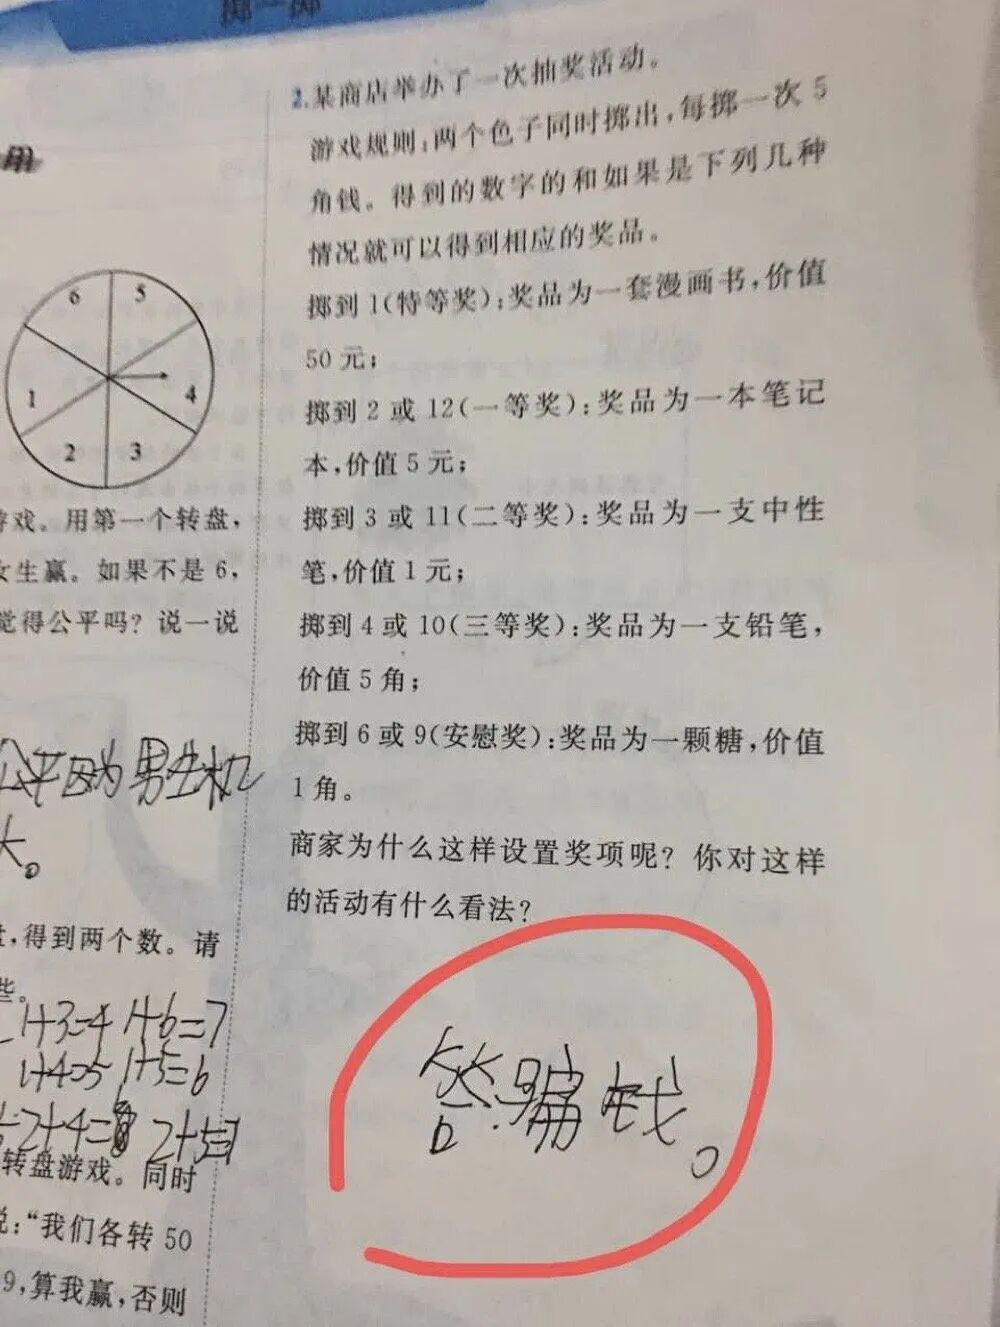 掷一掷
用
6
5
1
4
2
3
游戏。用第一个转盘，
女生赢。如果不是6，
觉得公平吗？说一说
公平因为男生机
大。
，得到两个数。请
些。
1+3=4 1+6=7
1+4=5 1+5=6
2+4= 2+5=7
转盘游戏。同时
说：“我们各转 50
9，算我赢，否则
2.某商店举办了一次抽奖活动。
游戏规则：两个色子同时掷出，每掷一次 5
角钱。得到的数字的和如果是下列几种
情况就可以得到相应的奖品。
掷到 1(特等奖)：奖品为一套漫画书，价值
50 元；
掷到 2 或 12(一等奖)：奖品为一本笔记
本，价值 5 元；
掷到 3 或 11(二等奖)：奖品为一支中性
笔，价值 1 元；
掷到 4 或 10(三等奖)：奖品为一支铅笔，
价值 5 角；
掷到 6 或 9(安慰奖)：奖品为一颗糖，价值
1 角。
商家为什么这样设置奖项呢？你对这样
的活动有什么看法？
答：骗钱。